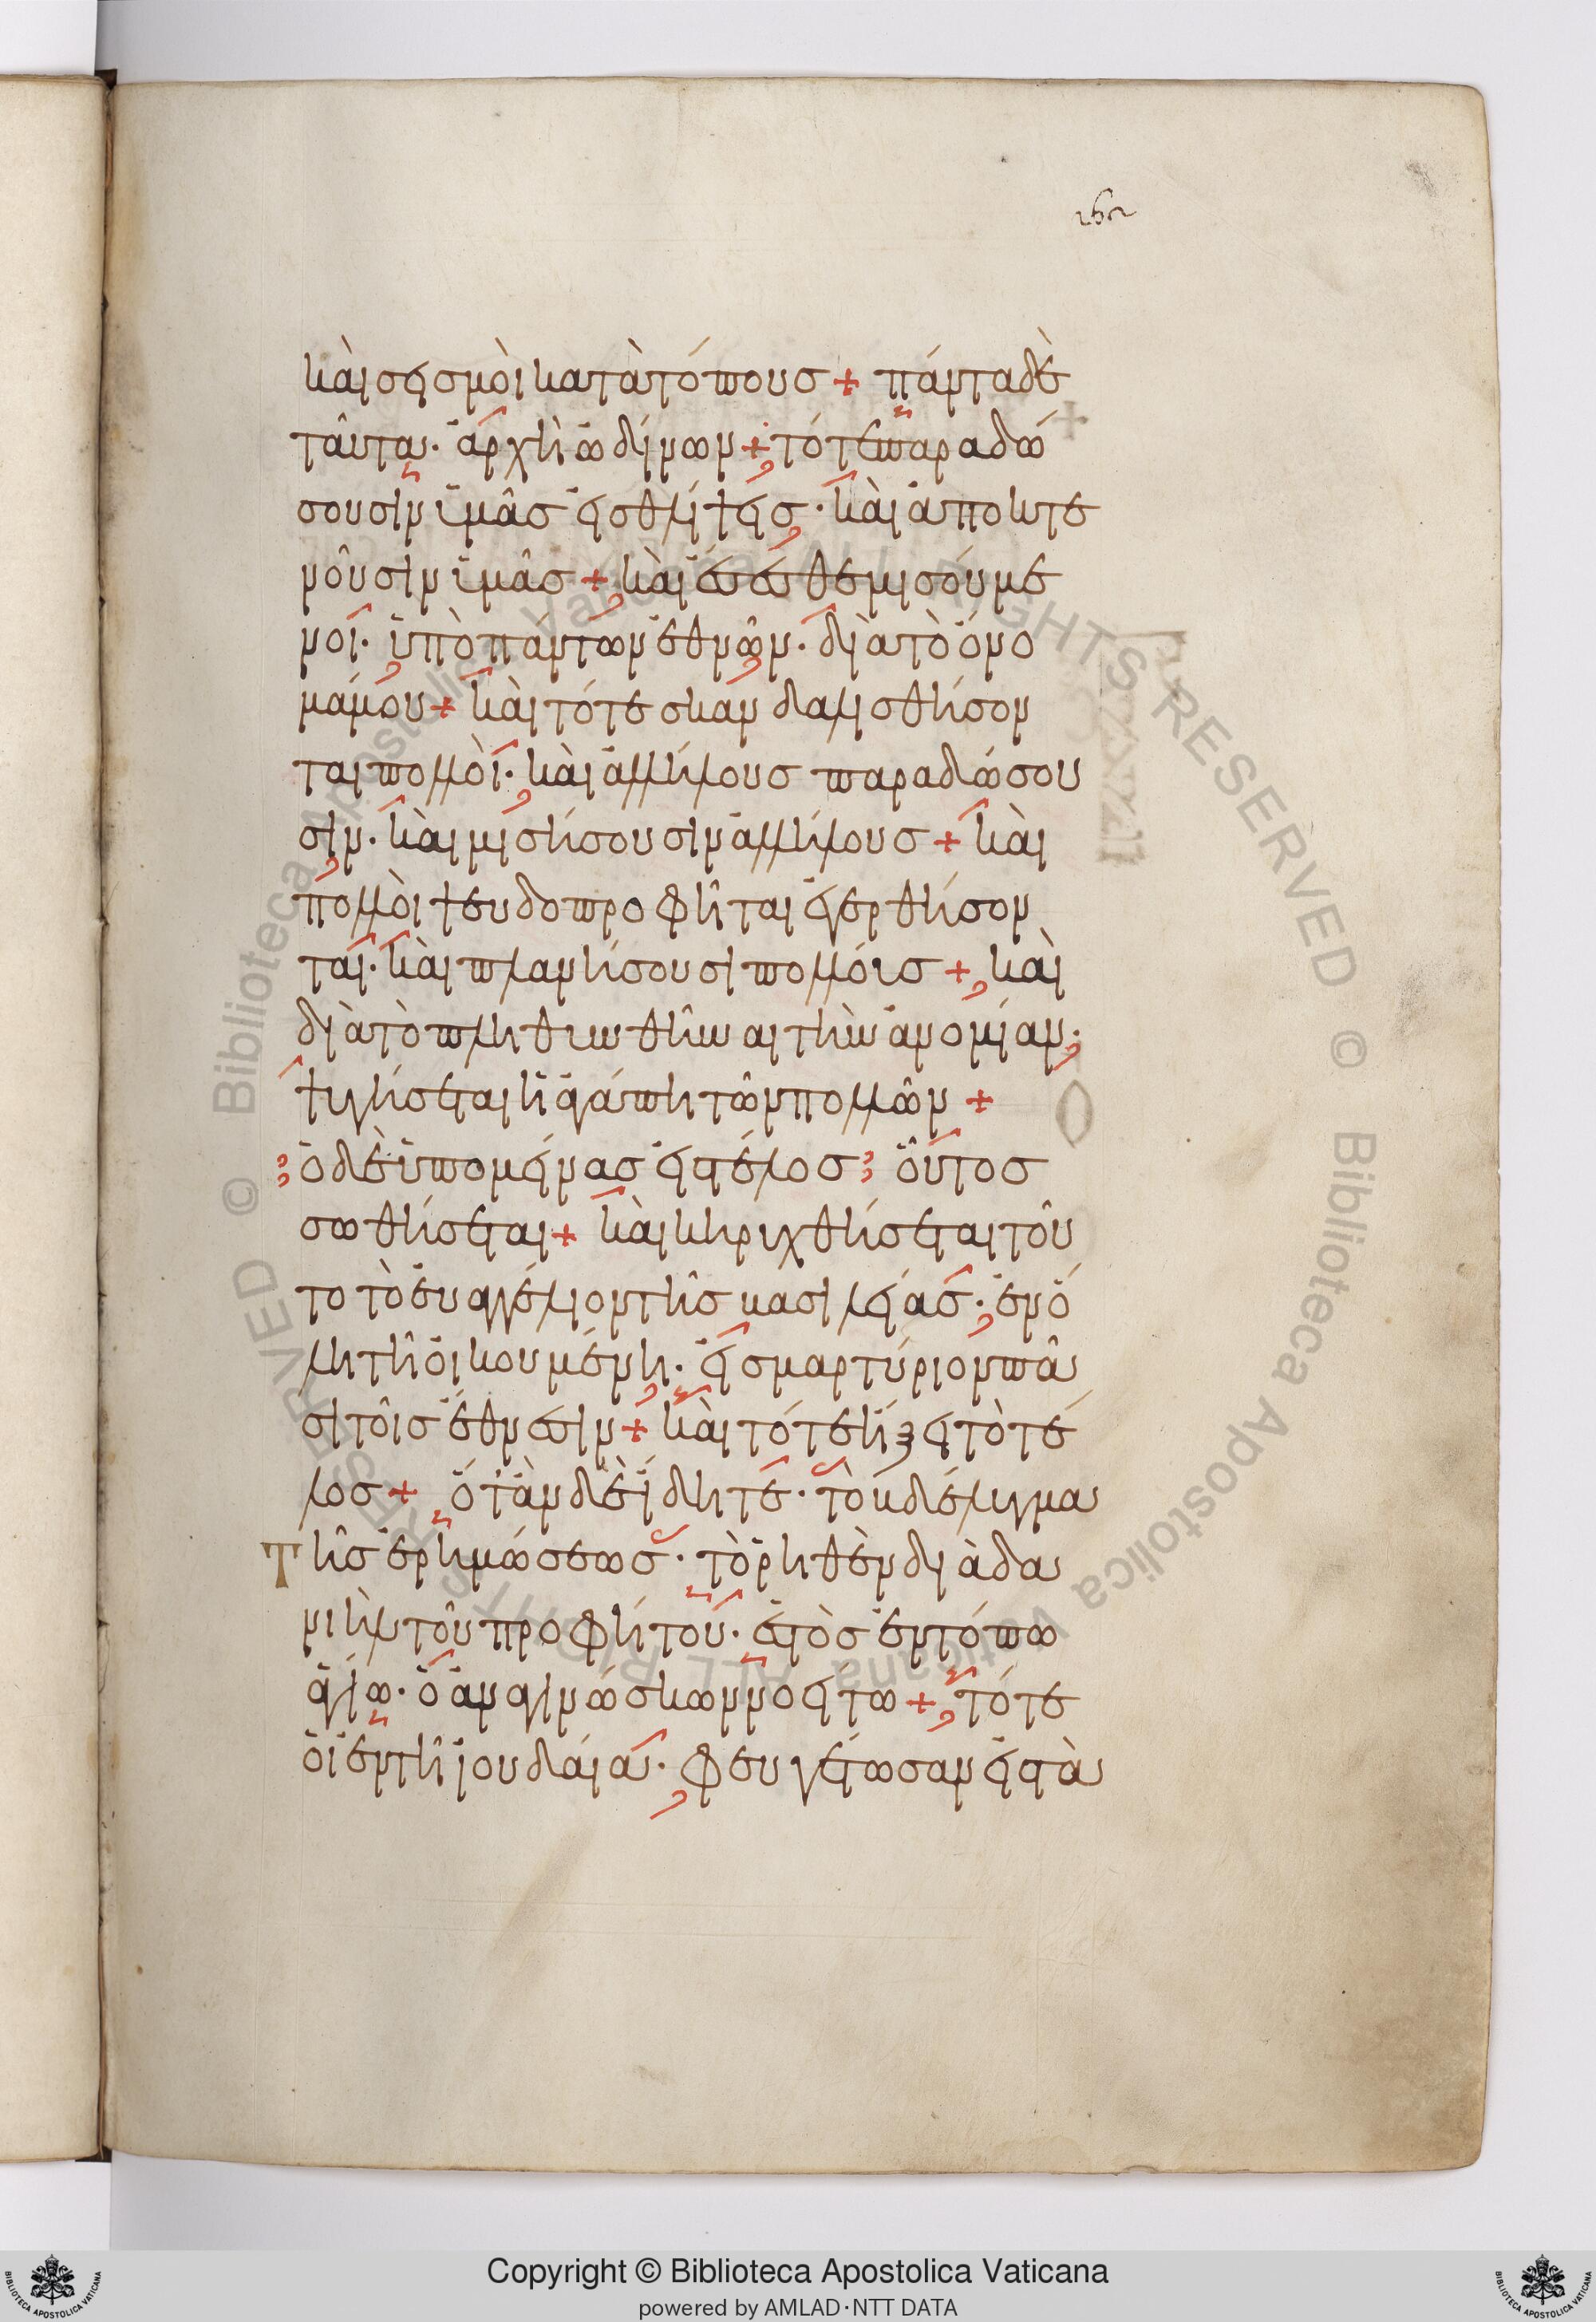 162
καὶ σεισμοὶ κατὰ τόπους + πάντα δὲ
ταῦτα· ἀρχὴ ὠδίνων + τότε παραδώ
σουσιν ὑμᾶς εἰς θλίψεις· καὶ ἀποκτε
νοῦσιν ὑμᾶς + καὶ ἔσεσθε μισούμε
νοι· ὑπὸ πάντων ἐθνῶν· διὰ τὸ ὄνο
μά μου + καὶ τότε σκανδαλισθήσον
ται πολλοί· καὶ ἀλλήλους παραδώσου
σιν· καὶ μισήσουσιν ἀλλήλους + καὶ
πολλοὶ ψευδοπροφῆται ἐγερθήσον
ται· καὶ πλανήσουσι πολλούς + καὶ
διὰ τὸ πληθυνθῆναι τὴν ἀνομίαν·
ψυγήσεται ἡ ἀγάπη τῶν πολλῶν +
ὁ δὲ ὑπομείνας εἰς τέλος οὗτος
σωθήσεται + καὶ κηρυχθήσεται τοῦ
το τὸ εὐαγγέλιον τῆς βασιλείας· ἐν ὅ
λη τῆ οἰκουμένη· εἰς μαρτύριον πᾶ
σι τοῖς ἔθνεσιν + καὶ τότε ἥξει τὸ τέ
λος + ὅταν δὲ ἴδητε· τὸ βδέλυγμα
τῆς ἐρημώσεως· τὸ ῥηθὲν διὰ δα
νιὴλ τοῦ προφήτου· ἑστὸς ἐν τόπω
ἁγίω· ὁ ἀναγινώσκων νοείτω + τότε
οἱ ἐν τῆ ἰουδαία· φευγέτωσαν ἐπὶ τὰ
Copyright © Biblioteca Apostolica Vaticana
powered by AMLAD·NTT DATA